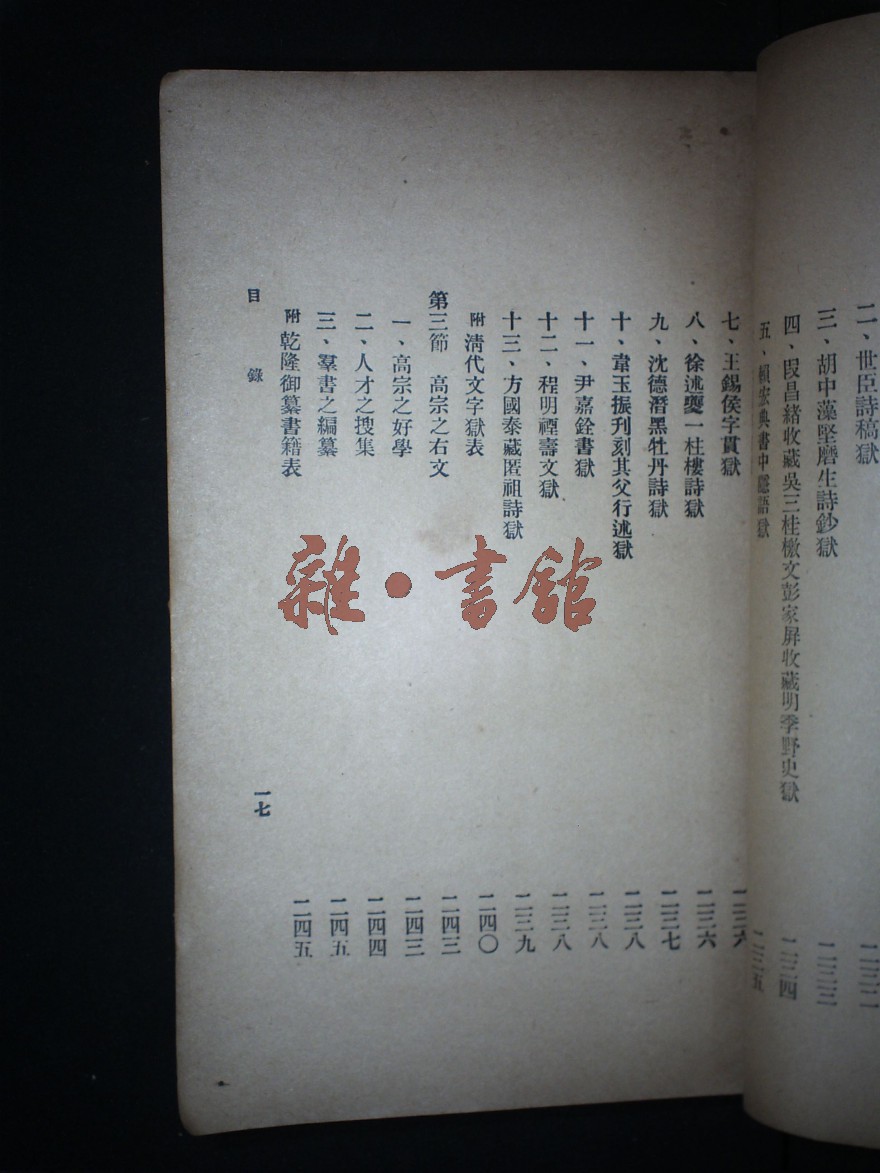 二、世臣詩稿獄 二三二
三、胡中藻堅磨生詩鈔獄 二三三
四、段昌緒收藏吳三桂檄文彭家屏收藏明季野史獄 二三四
五、賴宏典書中隱語獄 二三五
七、王錫侯字貫獄 二三六
八、徐述夔一柱樓詩獄 二三六
九、沈德潛黑牡丹詩獄 二三七
十、韋玉振刋刻其父行述獄 二三八
十一、尹嘉銓書獄 二三八
十二、程明禋壽文獄 二三八
十三、方國泰藏匿祖詩獄 二三九
附 淸代文字獄表 二四〇
第三節 高宗之右文 二四三
一、高宗之好學 二四三
二、人才之搜集 二四四
三、羣書之編纂 二四五
附 乾隆御纂書籍表 二四五
目錄 一七
雜·書館